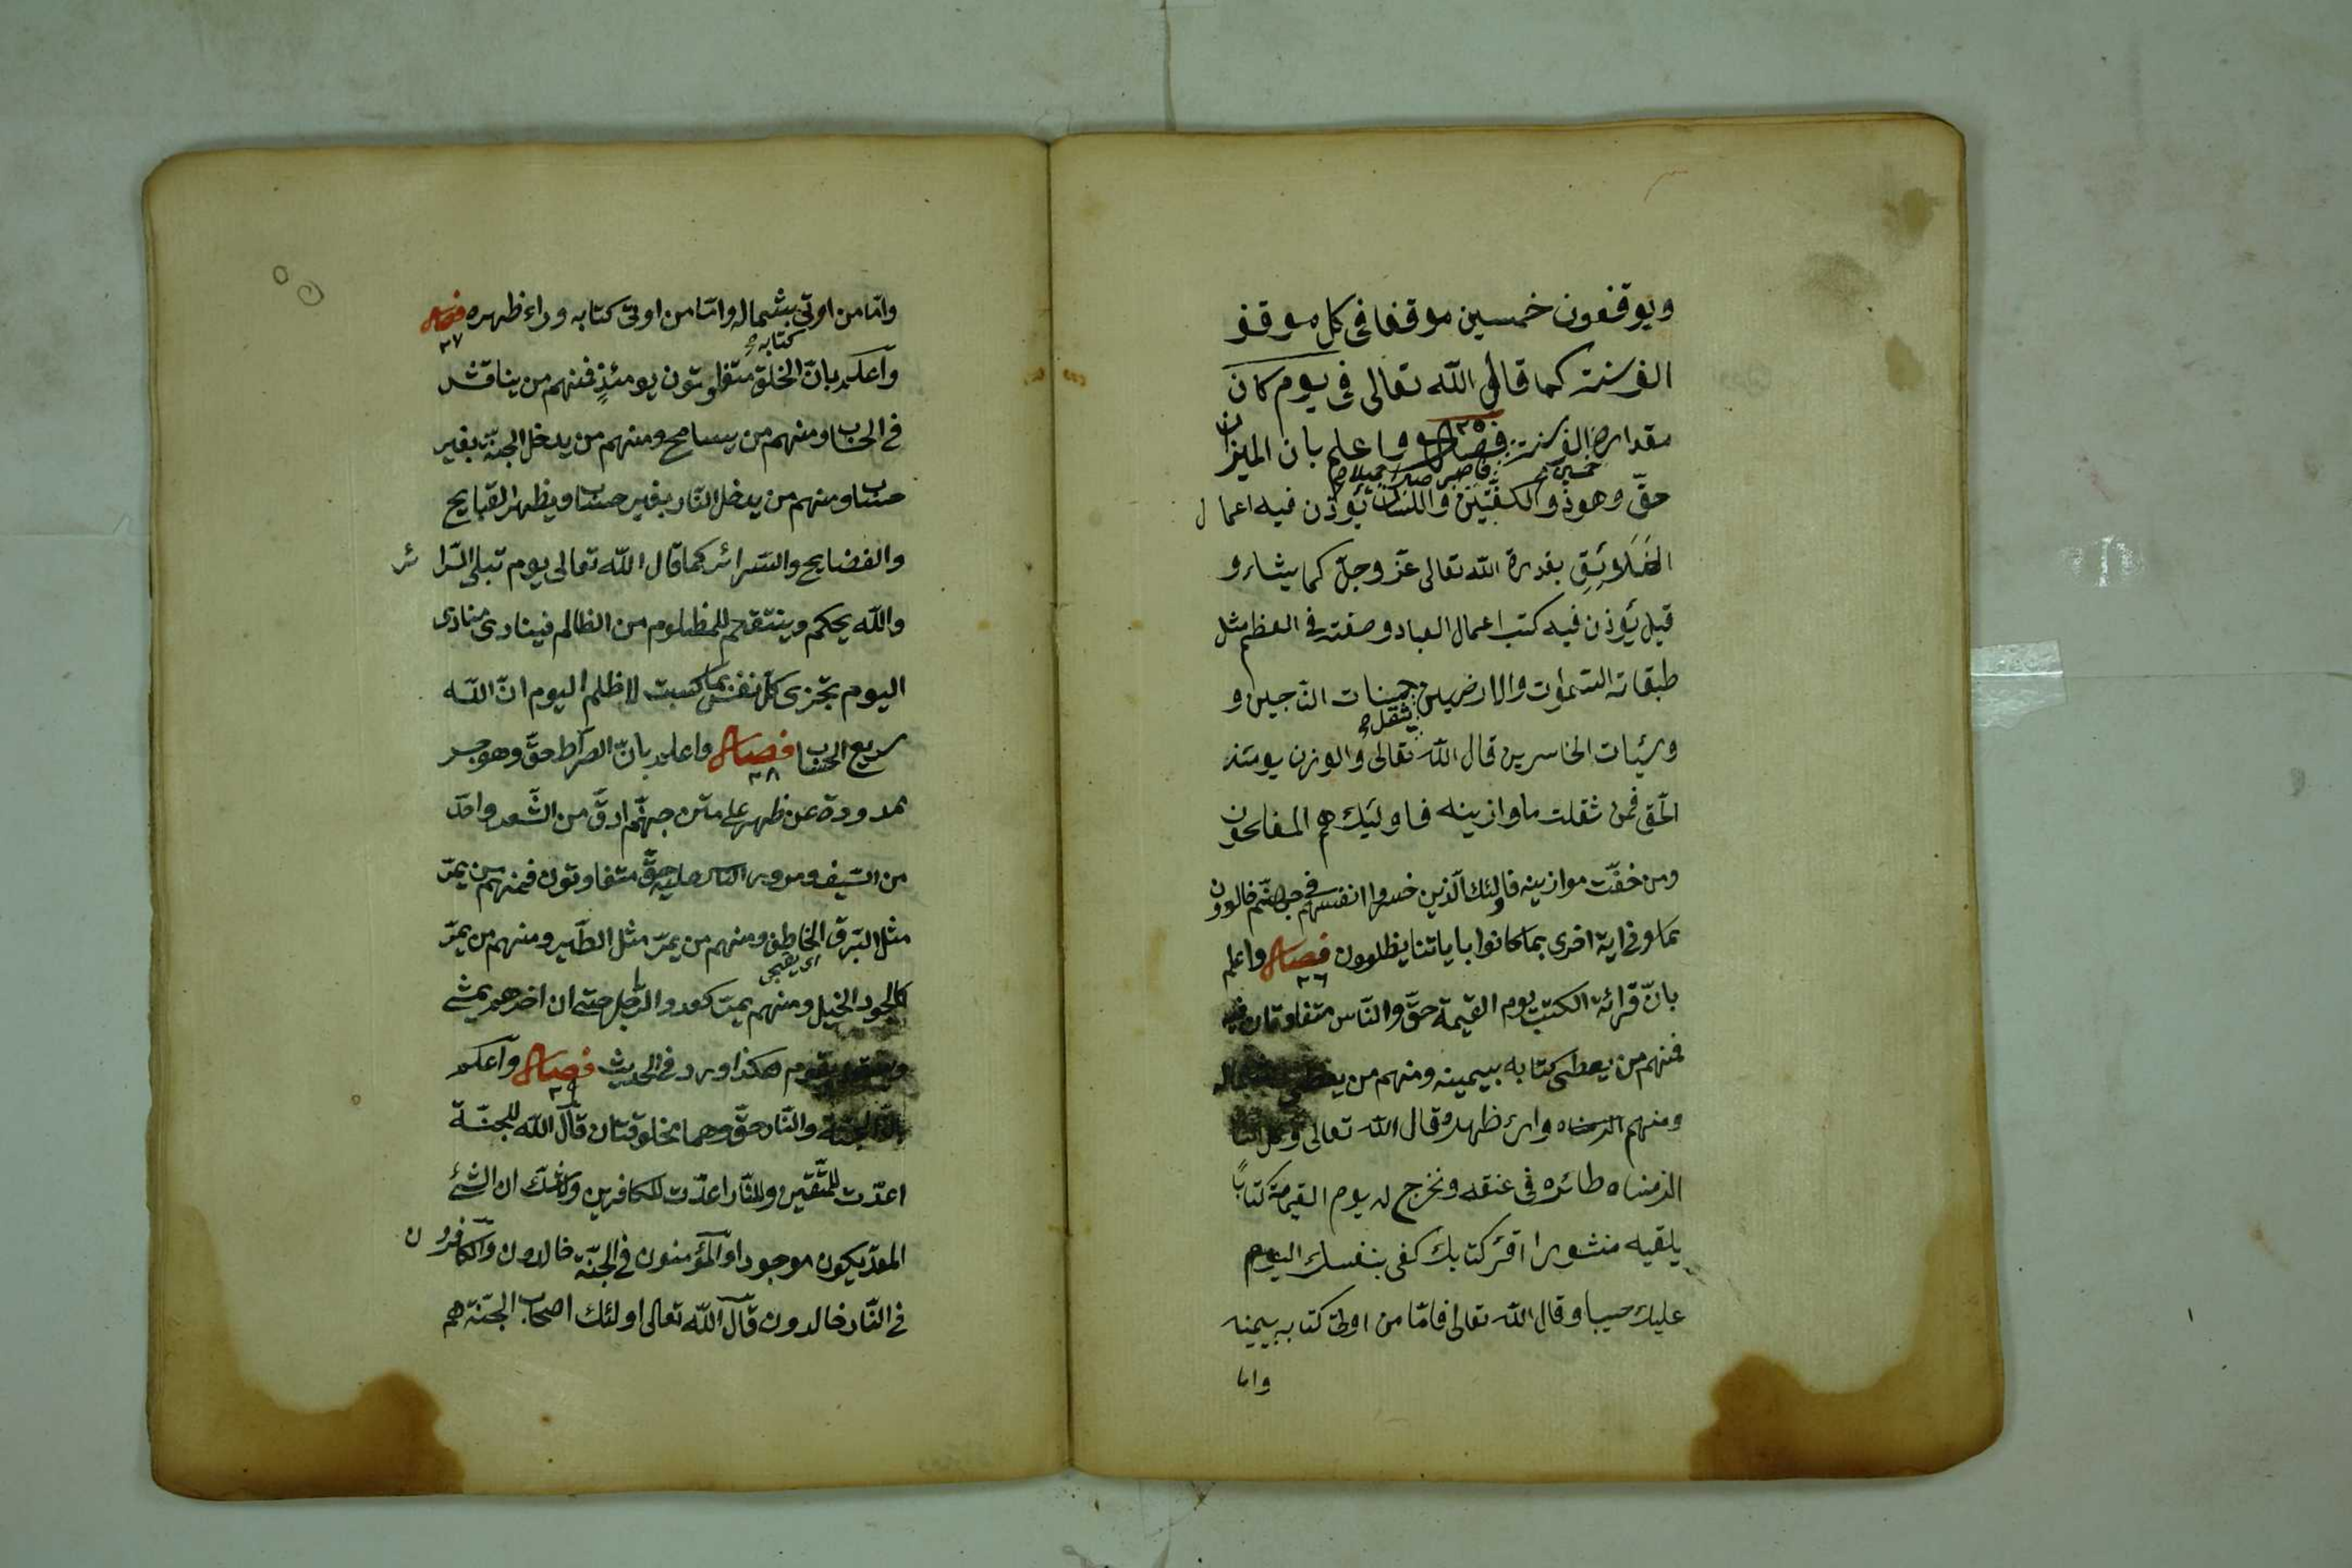 ويوقفون خمسين موقفا فى كل موقف
الف سنة كما قال الله تعالى فى يوم كان
مقداره الف سنة فصل ٣٥ واعلم بان الميزان
خمسين فاصبر صبرا جميلا
حقّ وهو ذو الكفّتين واللسان يؤذن فيه اعمال
الخَلَائِقِ بقدرة الله تعالى عزّ وجلّ كما يشاء و
قيل يؤذن فيه كتب اعمال العباد وصفته فى العظم مثل
طبقاته السّموات والارضين حسنات الناجين و
يثقل
وسيّات الخاسرين قال الله تعالى والوزن يومئذ
الحّق فمن ثقلت ماوازينه فاولئك هم المفلحون
ومن خفّت موازينه فاولئك الّذين خسروا انفسهم فى جهنّم خالدون
بما وفى اية اخرى بما كانوا باياتنا يظلمون فصل ٣٦ واعلم
بانّ قرائة الكتب يوم القيمة حقّ والنّاس متفاوتان
فمنهم من يعطى كتابه بيمينه ومنهم من
ومنهم وراء ظهره قال الله تعالى وكل
الزمناه طائره فى عنقه ونخرج له يوم القيمة كتابًا
يلقيه منشورا اقرء كتابك كفى بنفسك اليوم
عليك حسيبا وقال الله تعالى فامّا من اوتى كتابه بيمينه
واما
وامّا من اوتى بشماله وامّا من اوتى كتابه وراء ظهره فصل ٣٧
كتابه
واعلم بانّ الخلق متفاوتون يومئذٍ فمنهم من يناقش
فى الحساب ومنهم من يسامح ومنهم من يدخل الجنّة بغير
حساب ومنهم من يدخل النّار بغير حساب ويظهر القبايح
والفضايح والسّرائر كما قال الله تعالى يوم تبلى السّرائر
والله يحكم وينتقم للمظلوم من الظالم فينادى منادى
اليوم تجزى كلّ نفس بما كسبت لا ظلم اليوم انّ اللّه
سريع الحساب فصل ٣٨ واعلم بانّ الصراط حقّ وهو جسر
ممدودة عن ظهر على متن جهنّم ادقّ من الشّعر واحدّ
من السّيف ومرور النّاس عليه حقّ متفاوتون فمنهم من يمرّ
مثل البرق الخاطف ومنهم من يمرّ مثل الطّير ومنهم من يمرّ
كالجود الخيل ومنهم يمرّ كعدو الرّجل حتى ان اخرهم يمشى
يقوم هكذا ورد فى الحديث فصل ٣٩ واعلم
بانّ الجنّة والنّار حقّ وهما مخلوقتان قال الله للجنّة
اعدّت للمتّقين وللنّار اعدّت للكافرين ولا شكّ ان الشئ
المعدّ يكون موجودا والمؤمنون فى الجنّة خالدون والكافرون
فى النّار خالدون قال الله تعالى اولئك اصحاب الجنّة هم